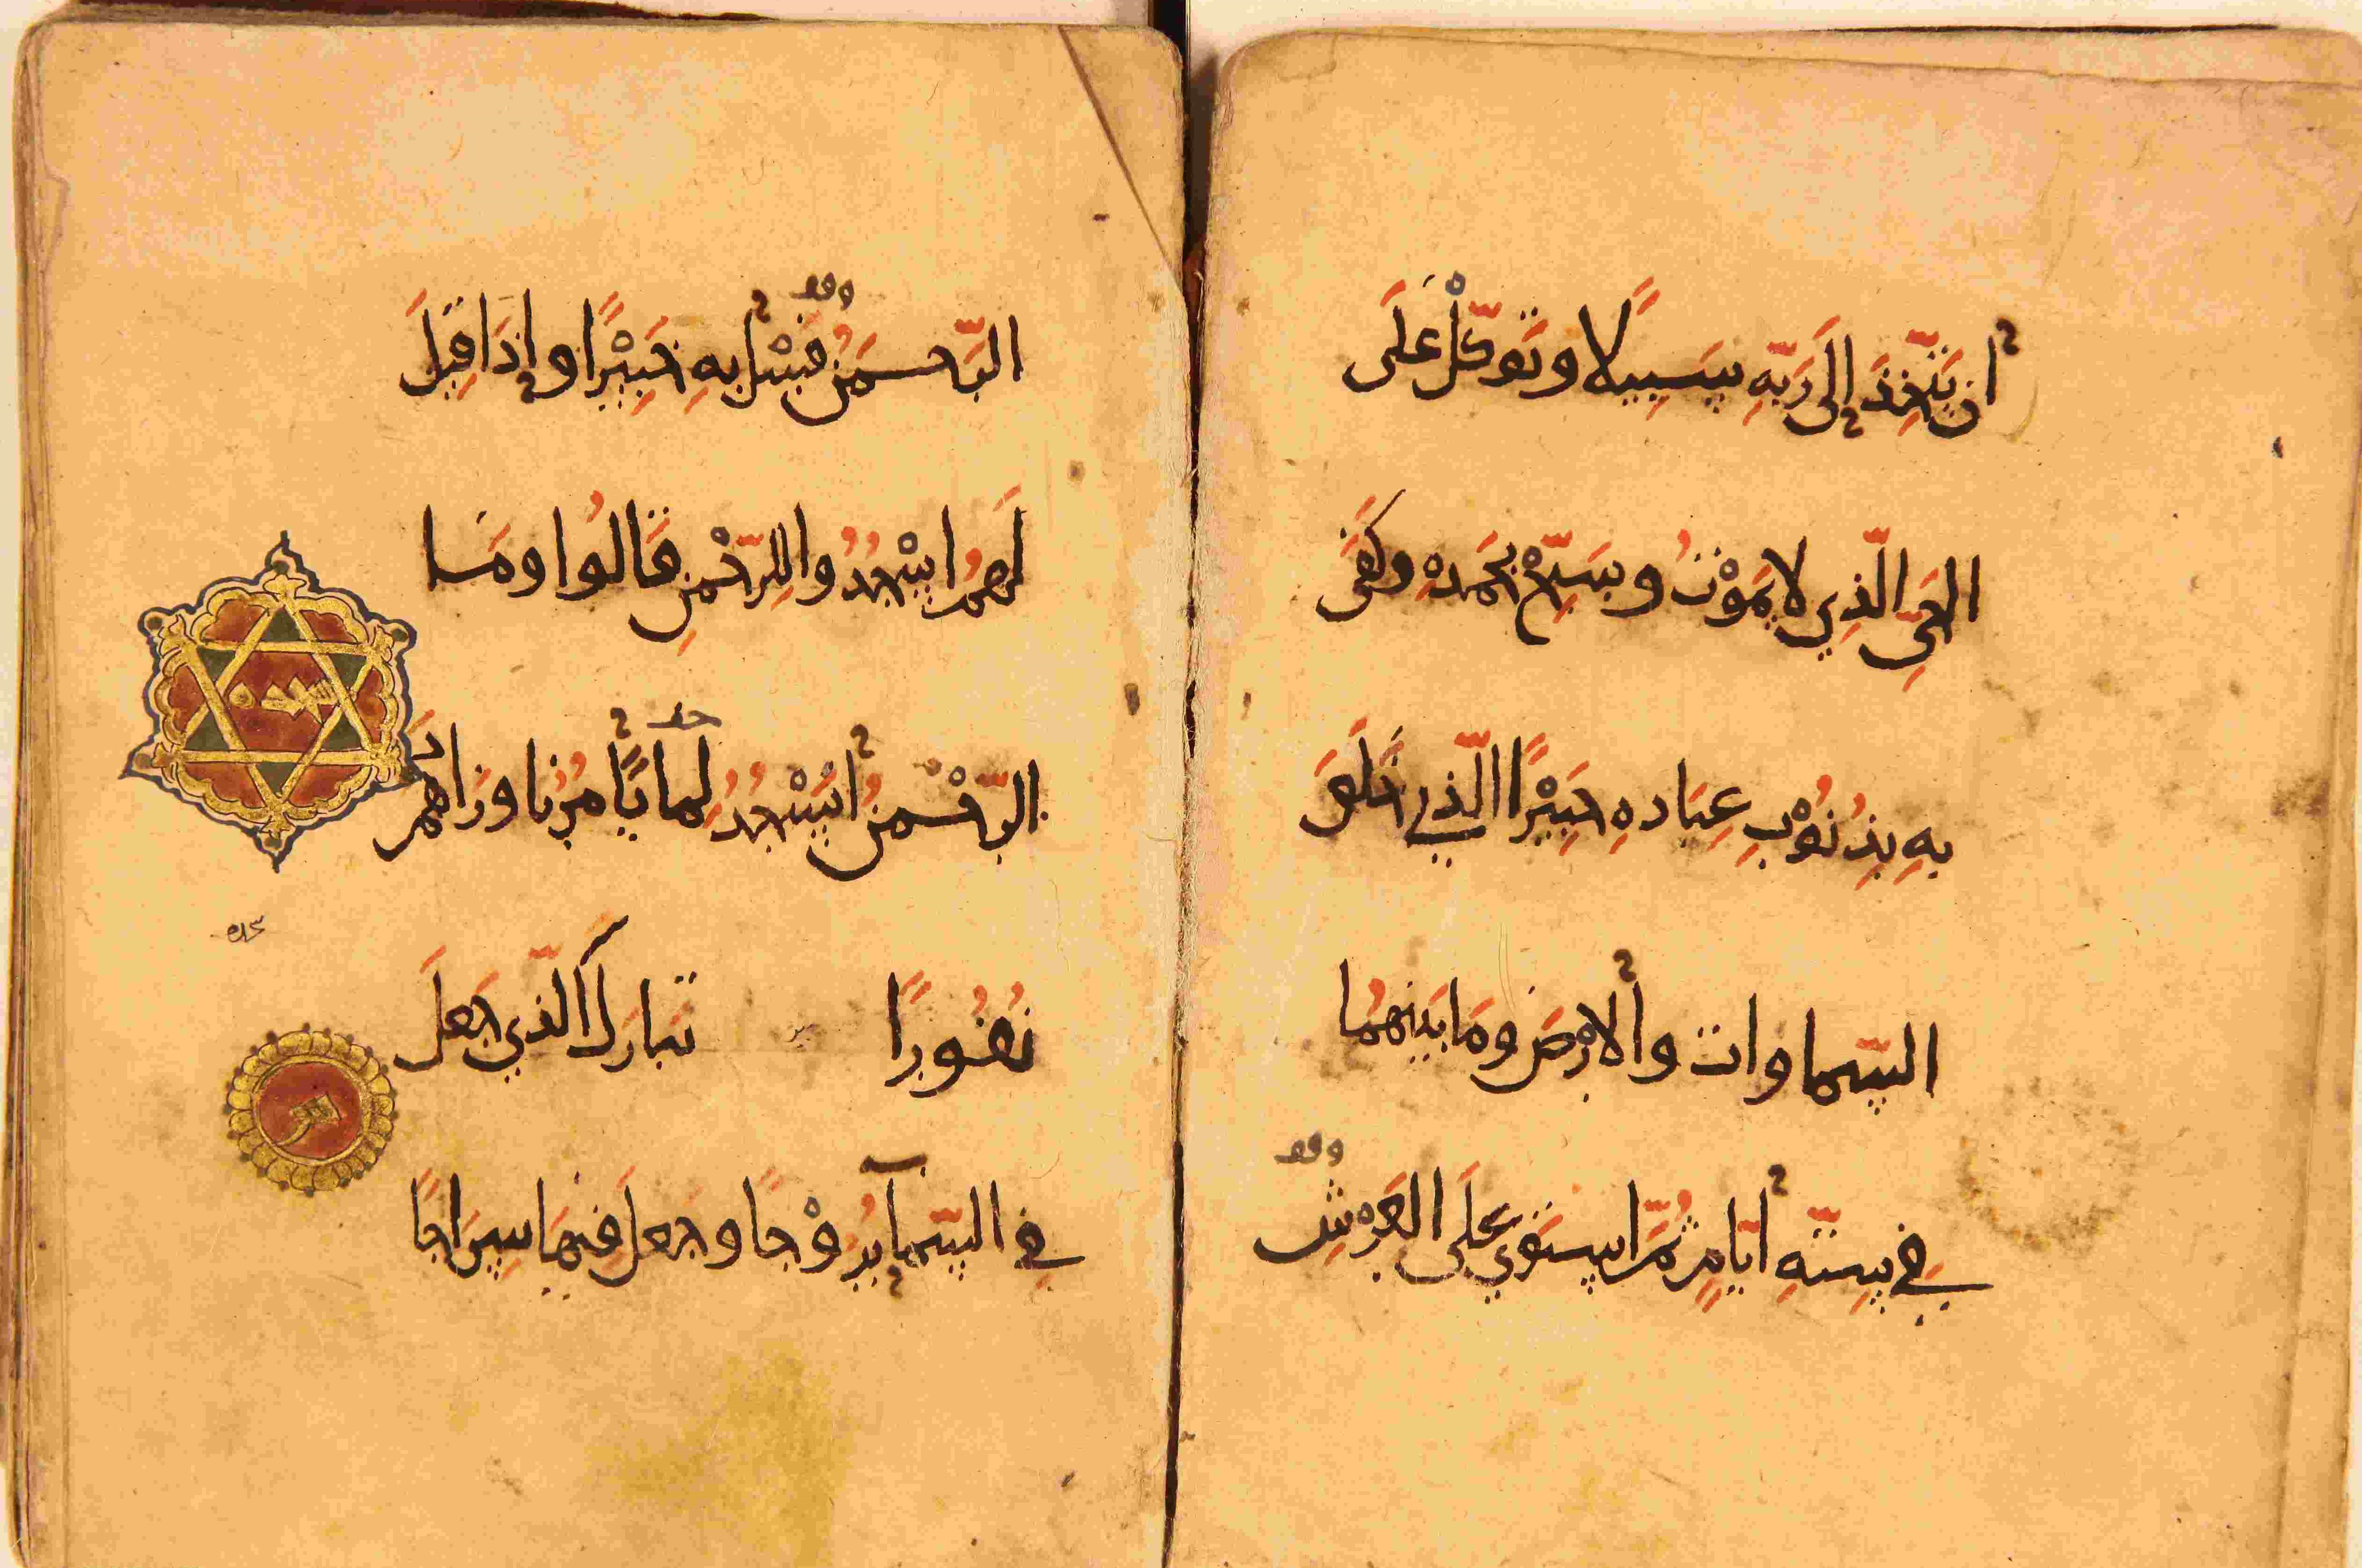 اَن يَتَّخِذَ إِلَى رَبِّهِ سَبِيلًا وتَوَكَّلْ عَلَى
الحَيِّ الَّذِي لا يَمَوْتُ وسَبِّحْ بِحَمْدِهِ وكَفَى
بِهِ بِذُنُوْبِ عِبَادِهِ خَبِيْرًا الَّذِي خَلَقَ
السَّماوات والأرْضَ ومَا بَيْنَهُمَا
فِي سِتَّةِ أَيَّامٍ ثُمَّ اسْتَوَي عَلَى العَرْشِ
وقف
وقف
الرَّحمَنُ فَسْئَلْ بِهِ خَبِيْرًا وإذَا قِيلَ
لَهمُ اسْجُدُوا لِلرَّحْمنِ قَالُوا ومَا
الرَّحْمنُ أَنَسْجُدُ لِما تَأْمُرُنا وزَادَهُمْ
سجده
سجده
نُفُورًا تَبارَكَ الَّذِي جَعَلَ
فِي السَّمآءِ بُرُوْجًا وجَعَلَ فِيهَا سِرَاجًا